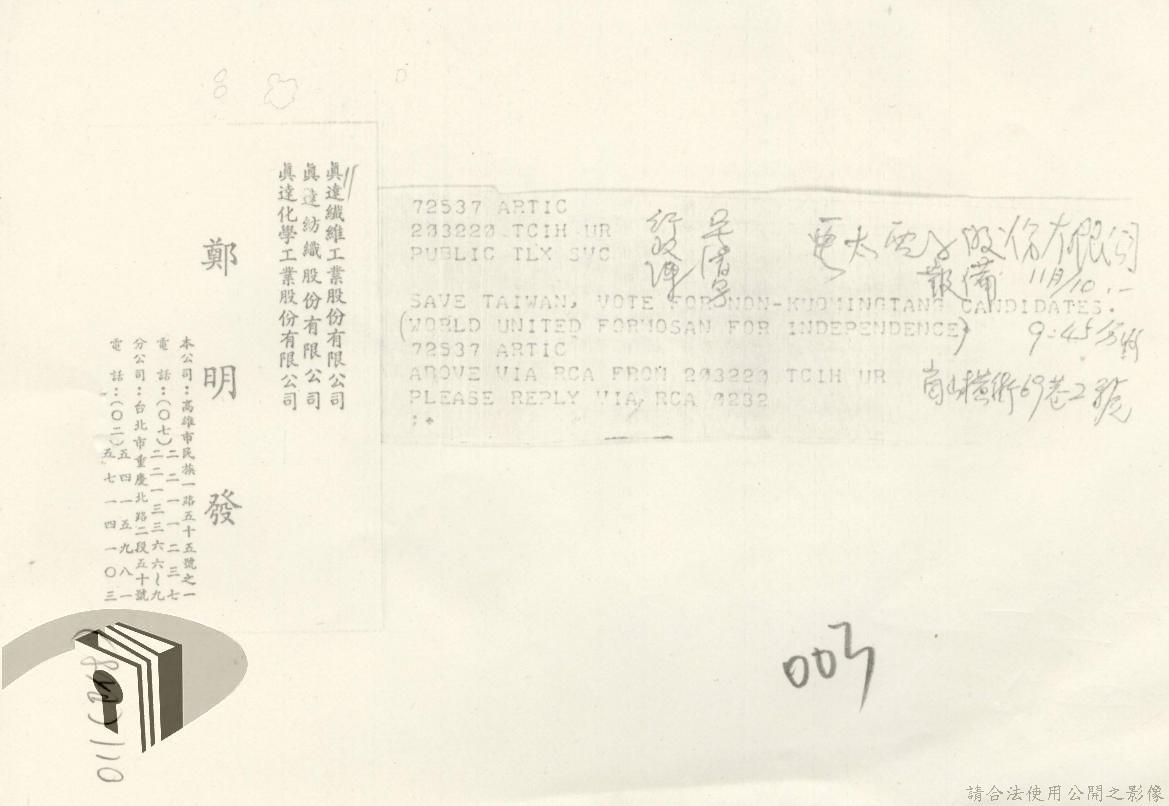 眞達纖維工業股份有限公司
眞達紡織股份有限公司
眞達化學工業股份有限公司
鄭明發
本公司：高雄市民族一路五十五號之一
電話：(〇七)二二一一二三七
二二一三三六六~九
分公司：台北市重慶北路二段五十號
電話：(〇二)五四一五九八一
五七一四一〇三
72537 ARTIC
203220 TCIH UR
PUBLIC TLX SVC
SAVE TAIWAN, VOTE FOR NON-KUOMINGTANG CANDIDATES.
(WORLD UNITED FORMOSAN FOR INDEPENDENCE)
72537 ARTIC
ABOVE VIA RCA FROM 203220 TCIH UR
PLEASE REPLY VIA RCA 0232
:
股份有限公司
報備 11月/10
9:45分
69巷2號
003
請合法使用公開之影像